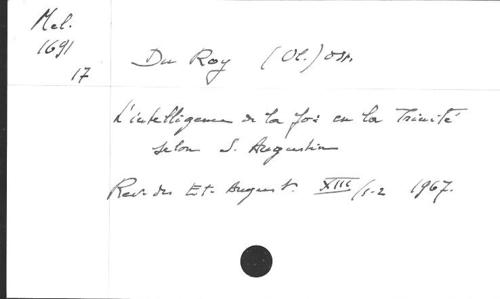 Mel.
1691
17
Du Roy (Ol.) OSB.
L'intelligence de la foi en la Trinité
selon S. Augustin
Rev. des Et. August. XIII/1-2 1967.